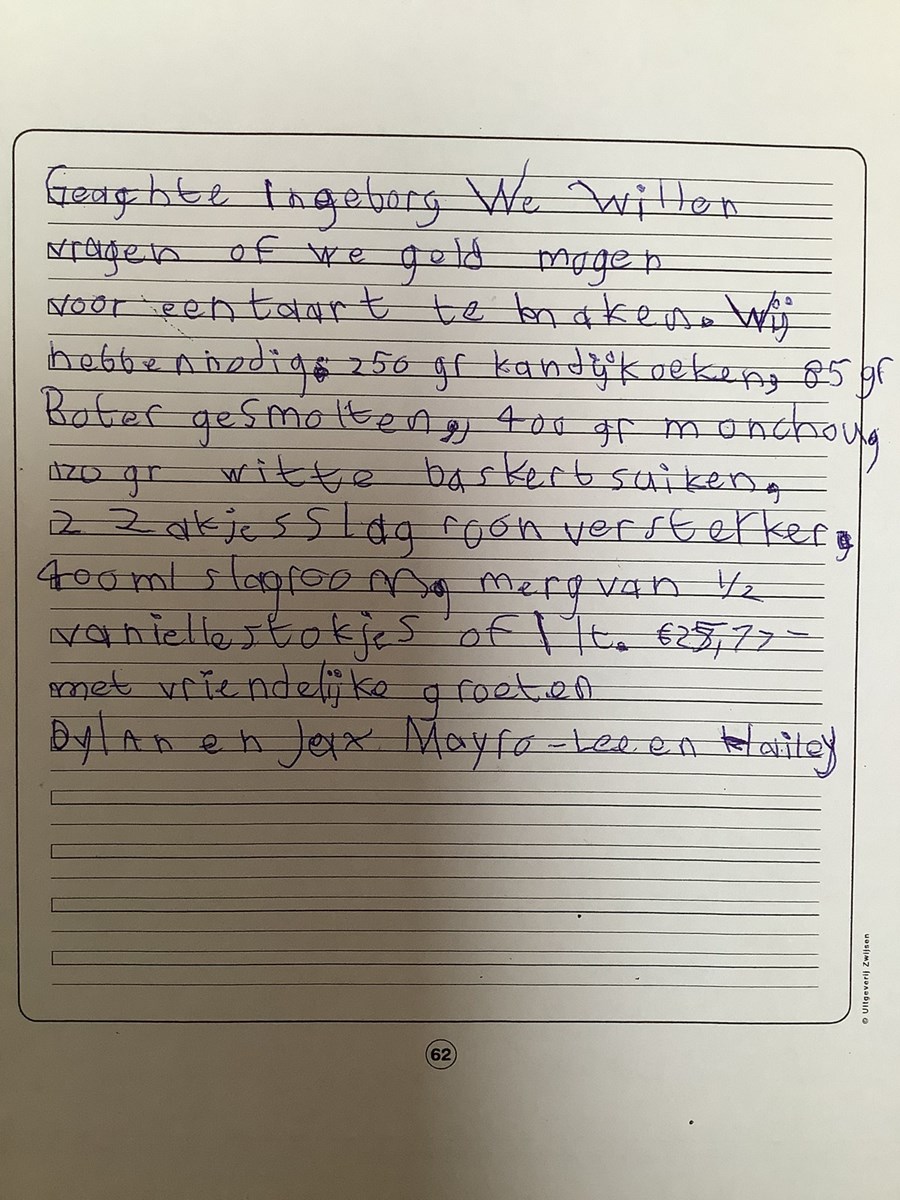 Geachte Ingeborg We willen
vragen of we geld mogen
voor een taart te maken. Wij
hebben nodig: 250 gr kandijkoeken, 85 gr
Boter gesmolten, 400 gr monchou,
120 gr witte baskertsuiken,
2 Zakjes Slag roonversterker,
400ml slagroom, merg van 1/2
vaniellestokjes of 1 lt. €25,77-
met vriendelijke groeten
Dylan en Jax Mayra-Lee en Hailey
© Uitgeverij Zwijsen
62